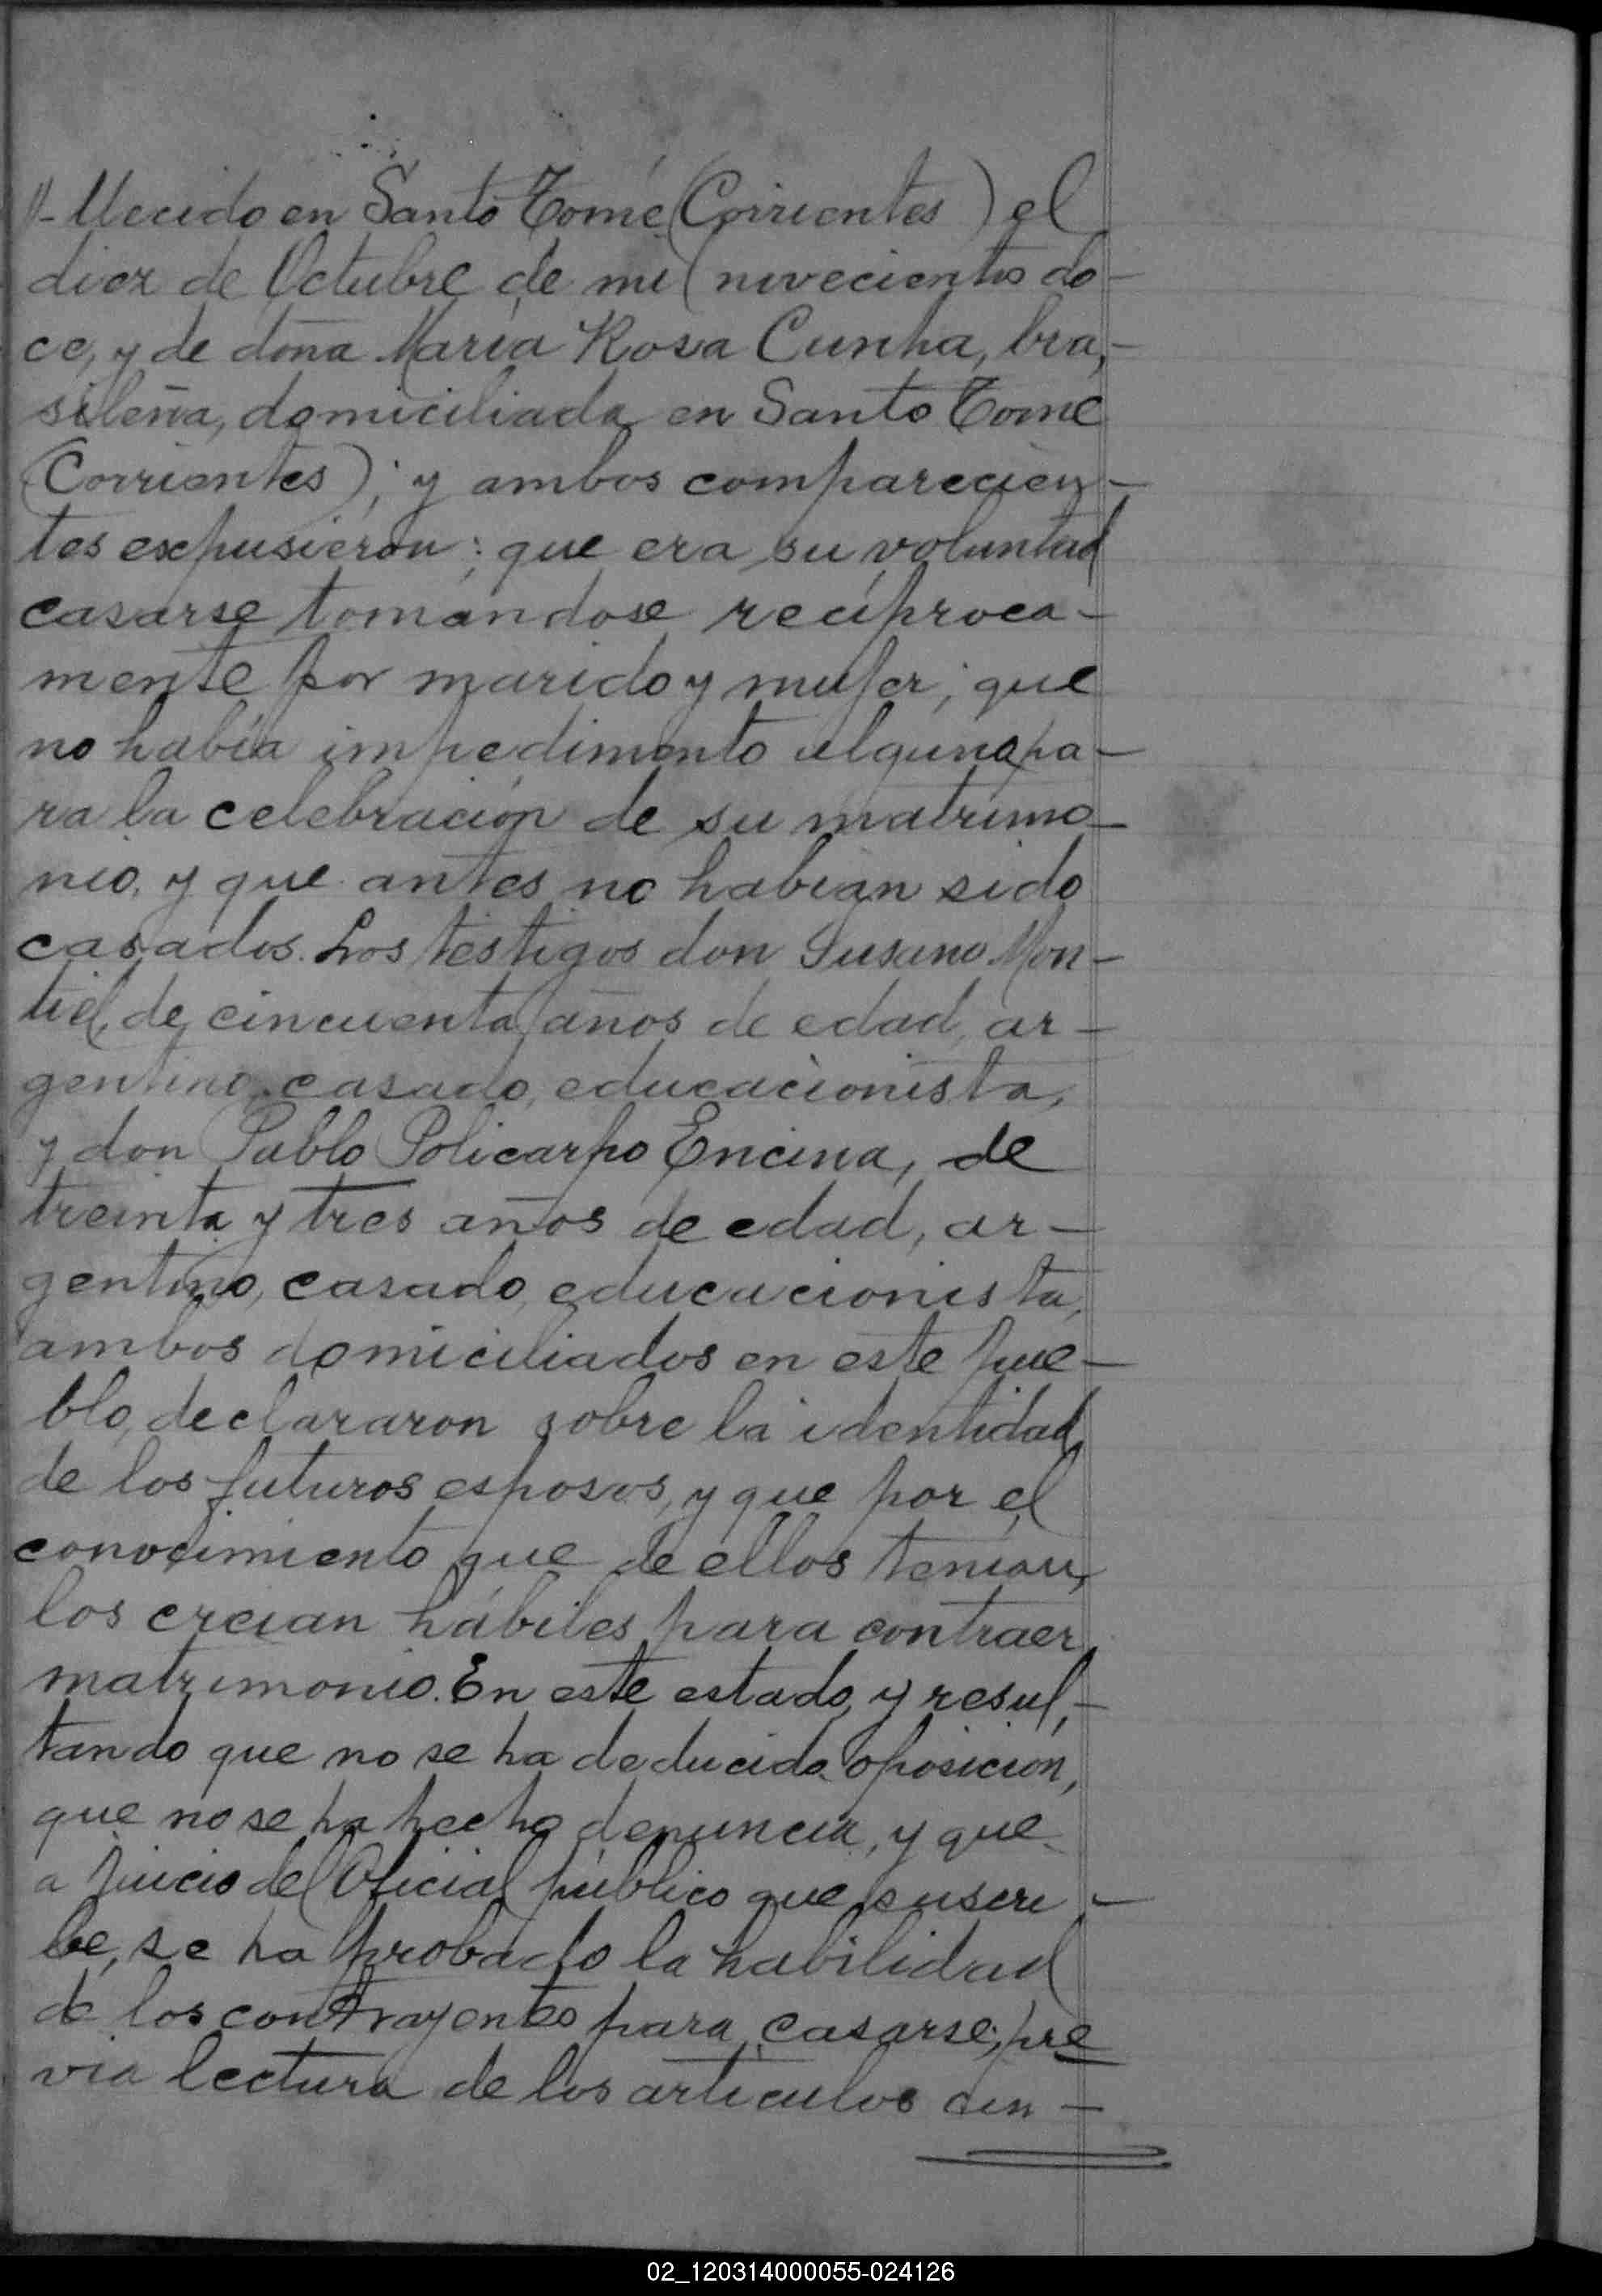 //-llecido en Santo Tomé (Corrientes) el
diez de Octubre de mil novecientos do-
ce, y de doña María Rosa Cunha, bra,-
sileña, domiciliada en Santo Tomé
(Corrientes); y ambos comparecien-
tes expusieron: que era su voluntad
casarse tomándose recíproca-
mente por marido y mujer; que
no había impedimento alguno pa-
ra la celebración de su matrimo-
nio, y que antes no habían sido
casados. Los testigos don Susano Mon-
tiel, de cincuenta años de edad, ar-
gentino, casado, educacionista,
y don Pablo Policarpo Encina, de
treinta y tres años de edad, ar-
gentino, casado, educacionista,
ambos domiciliados en este pue-
blo, declararon sobre la identidad
de los futuros esposos, y que por el
conocimiento que de ellos tenían,
los creían hábiles para contraer
matrimonio. En este estado, y resul,-
tando que no se ha deducido oposición,
que no se ha hecho denuncia, y que
a juicio del Oficial público que suscri-
be, se ha probado la habilidad
de los contrayentes para casarse, pre
via lectura de los artículos cin-
02_120314000055-024126